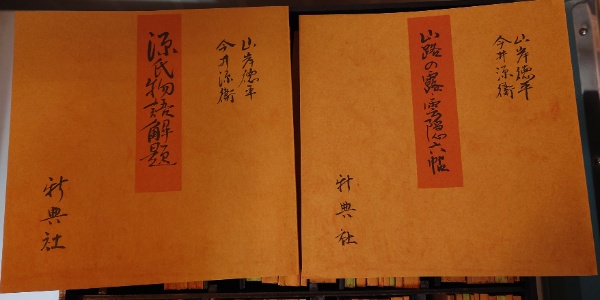 山岸徳平
今井源衛
源氏物語解題
新典社
山岸徳平
今井源衛
山路の露・雲隠六帖
新典社